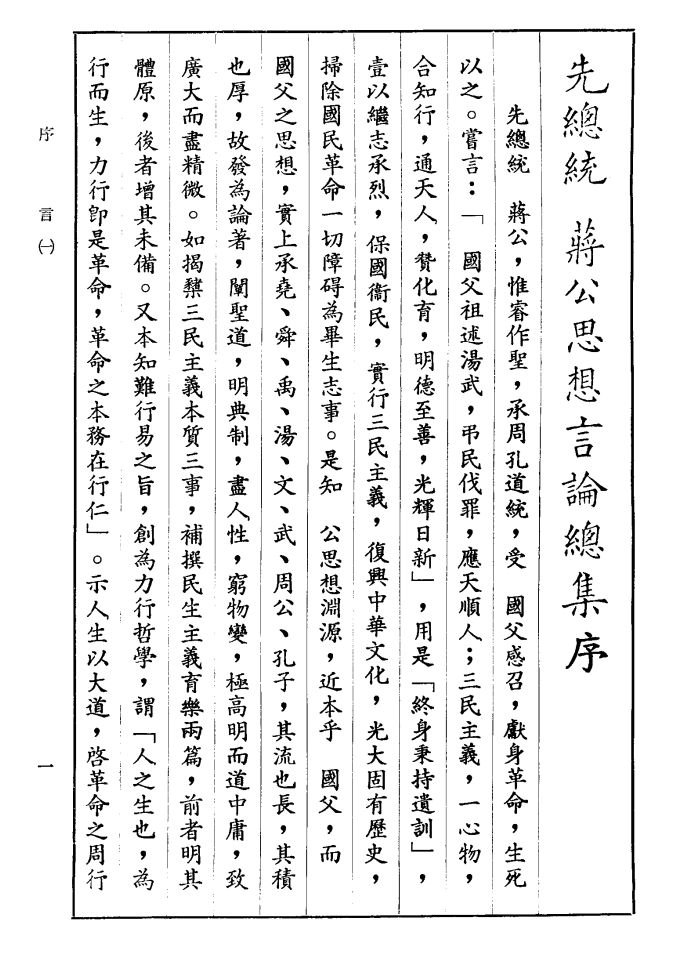 先總統　蔣公思想言論總集序
先總統　蔣公，惟睿作聖，承周孔道統，受　國父感召，獻身革命，生死
以之。嘗言：「　國父祖述湯武，弔民伐罪，應天順人；三民主義，一心物，
合知行，通天人，贊化育，明德至善，光輝日新」，用是「終身秉持遺訓」，
壹以繼志承烈，保國衞民，實行三民主義，復興中華文化，光大固有歷史，
掃除國民革命一切障碍為畢生志事。是知　公思想淵源，近本乎　國父，而
國父之思想，實上承堯、舜、禹、湯、文、武、周公、孔子，其流也長，其積
也厚，故發為論著，闡聖道，明典制，盡人性，窮物變，極高明而道中庸，致
廣大而盡精微。如揭櫫三民主義本質三事，補撰民生主義育樂兩篇，前者明其
體原，後者增其未備。又本知難行易之旨，創為力行哲學，謂「人之生也，為
行而生，力行即是革命，革命之本務在行仁」。示人生以大道，啓革命之周行
序　言㈠
一